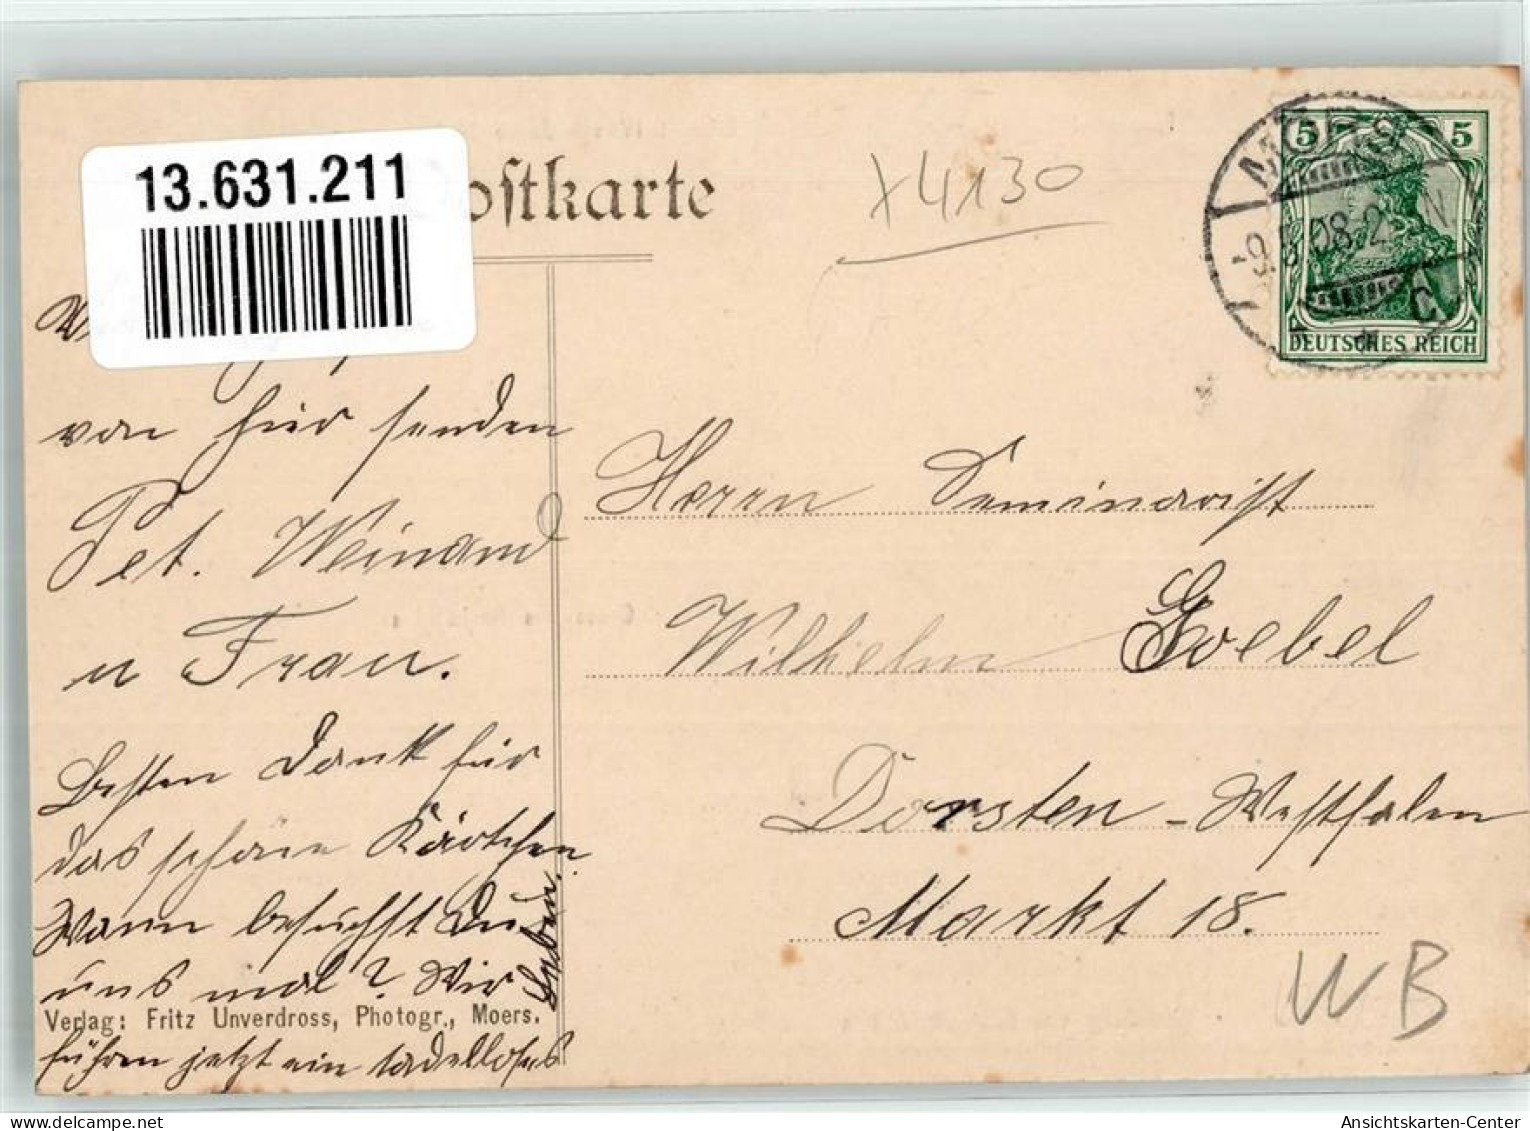 13.631.211
ostkarte
x 4130
MOERS
-9.8.08.2-3N
* C
5 5
DEUTSCHES REICH
von hier senden
Pet. Weinand
u Frau.
Besten Dank für
das schöne Kärtchen.
Wann besuchst Du
uns mal? Wir
führen jetzt ein tadelloses
Leben.
Verlag: Fritz Unverdross, Photogr., Moers.
Herrn Seminarist
Wilhelm Goebel
Dorsten - Westfalen
Markt 18.
WB
www.delcampe.net
Ansichtskarten-Center